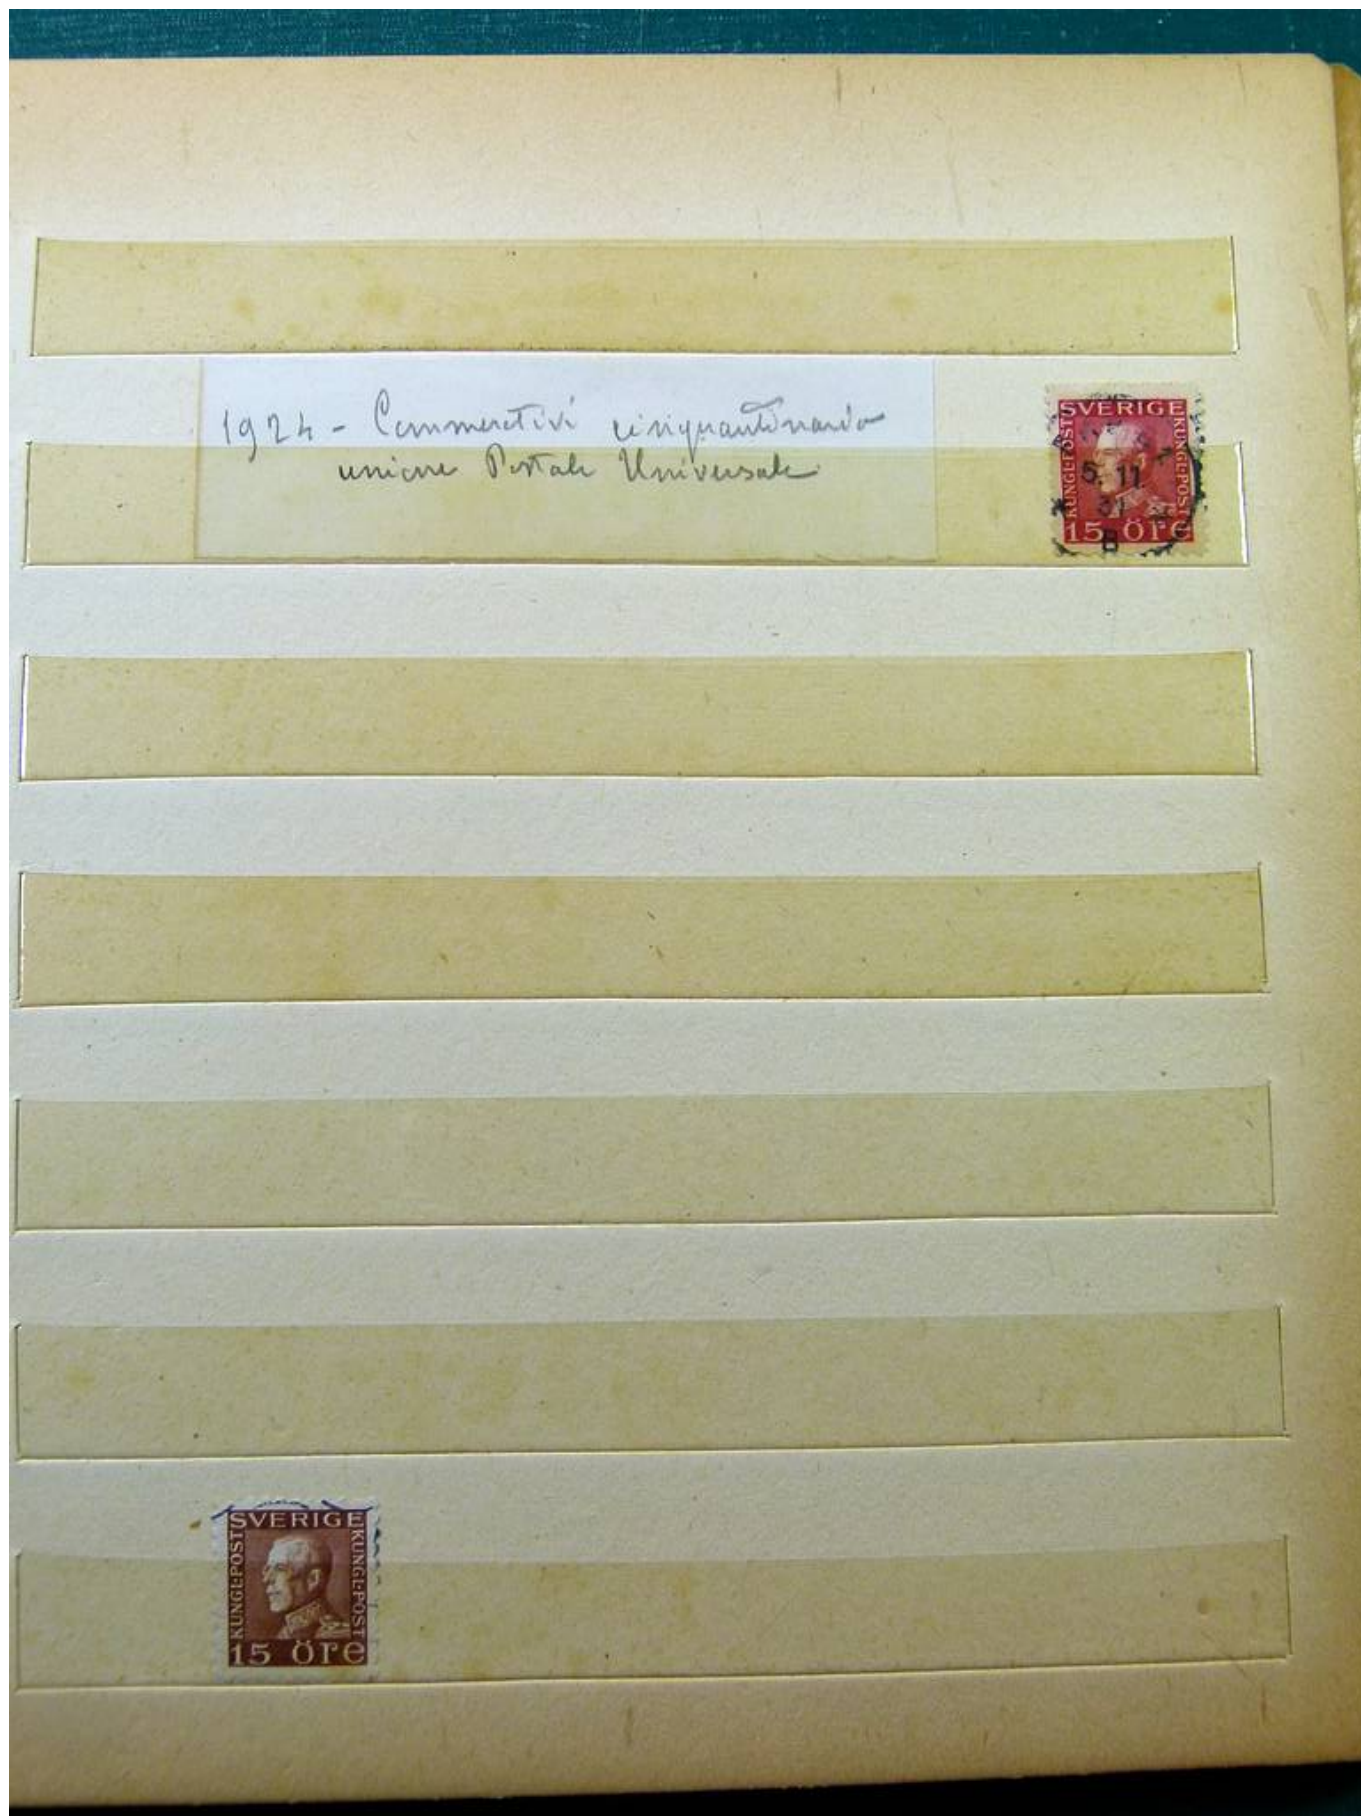 1924 - Commerativi cinquantinario
unione Postale Universale
SVERIGE
KUNGL·POST
KUNGL·POST
5. 11
31
B
15 ÖRE
SVERIGE
KUNGL·POST
KUNGL·POST
15 ÖRE